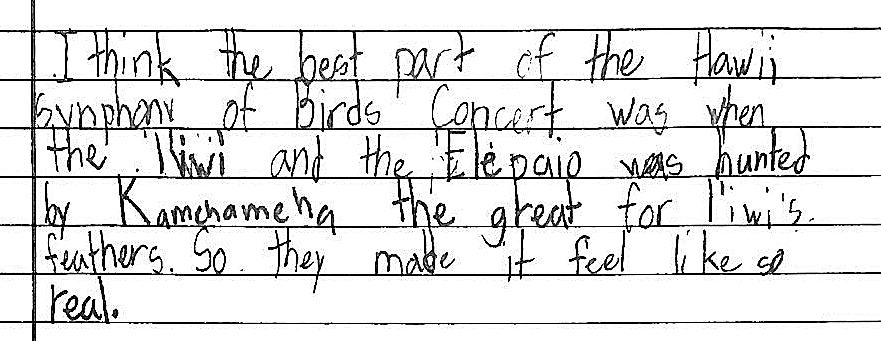 I think the best part of the Hawii
Synphony of Birds Concert was when
the 'I'iwi and the 'Elepaio was hunted
by Kamehameha the great for I'iwi's
feathers. So they made it feel like so
real.